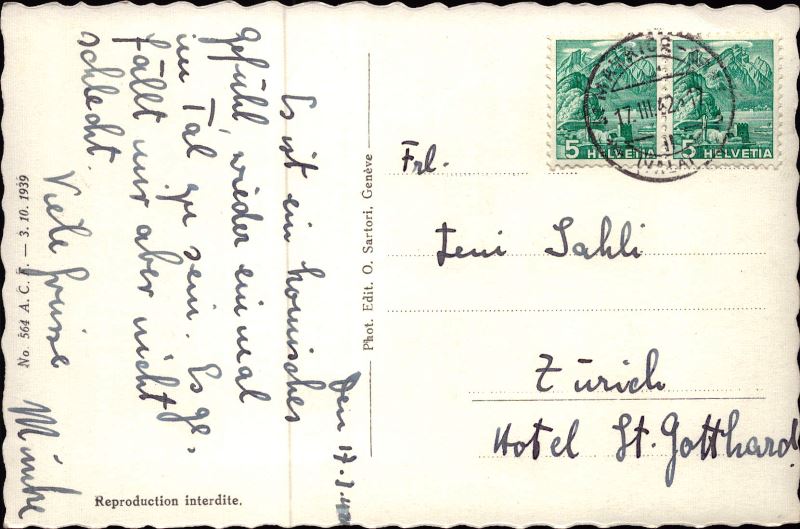 Den 17.3.42
Es ist ein komisches
gefühl wieder einmal
im Tal zu sein. Es ge-
fällt mir aber nicht
schlecht.
Viele Grüsse
No. 564 A. C. F. — 3. 10. 1939
Reproduction interdite.
Phot. Edit. O. Sartori, Genève
5 HELVETIA
5 HELVETIA
17.III.42
(VALAIS)
Frl.
Jeni Sahli
Zürich
Hotel St. Gotthard